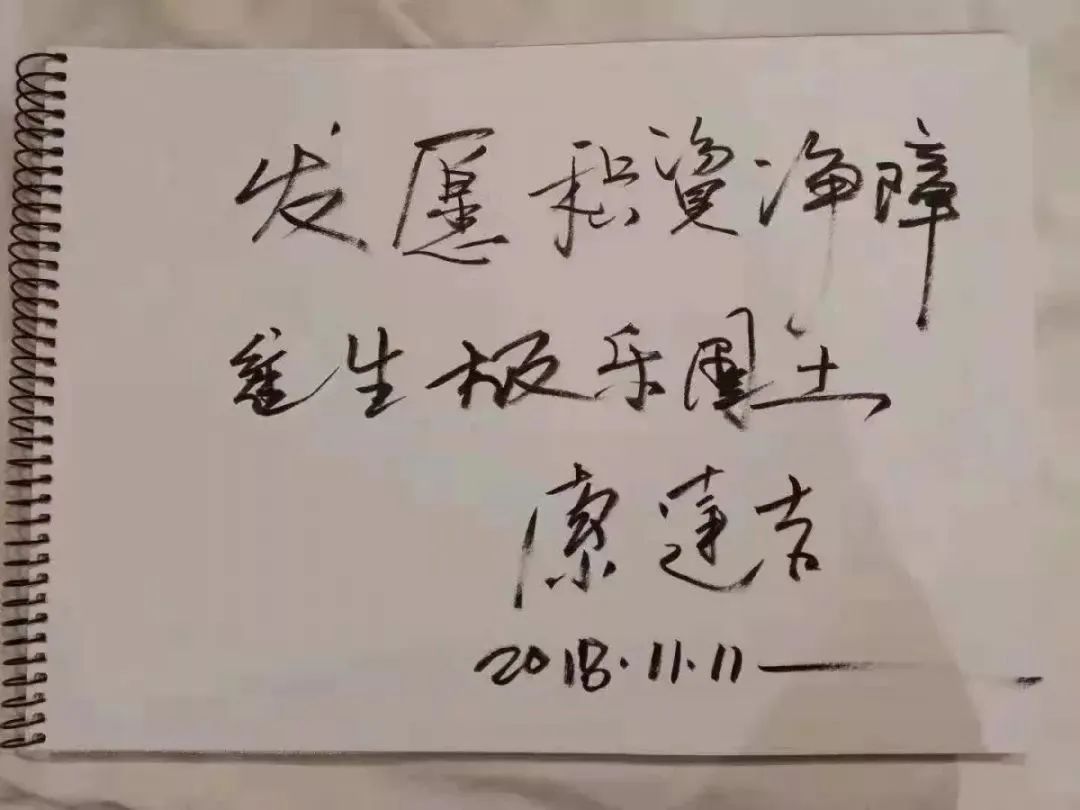 发愿积資净障
往生极乐国土
索達吉
2018.11.11